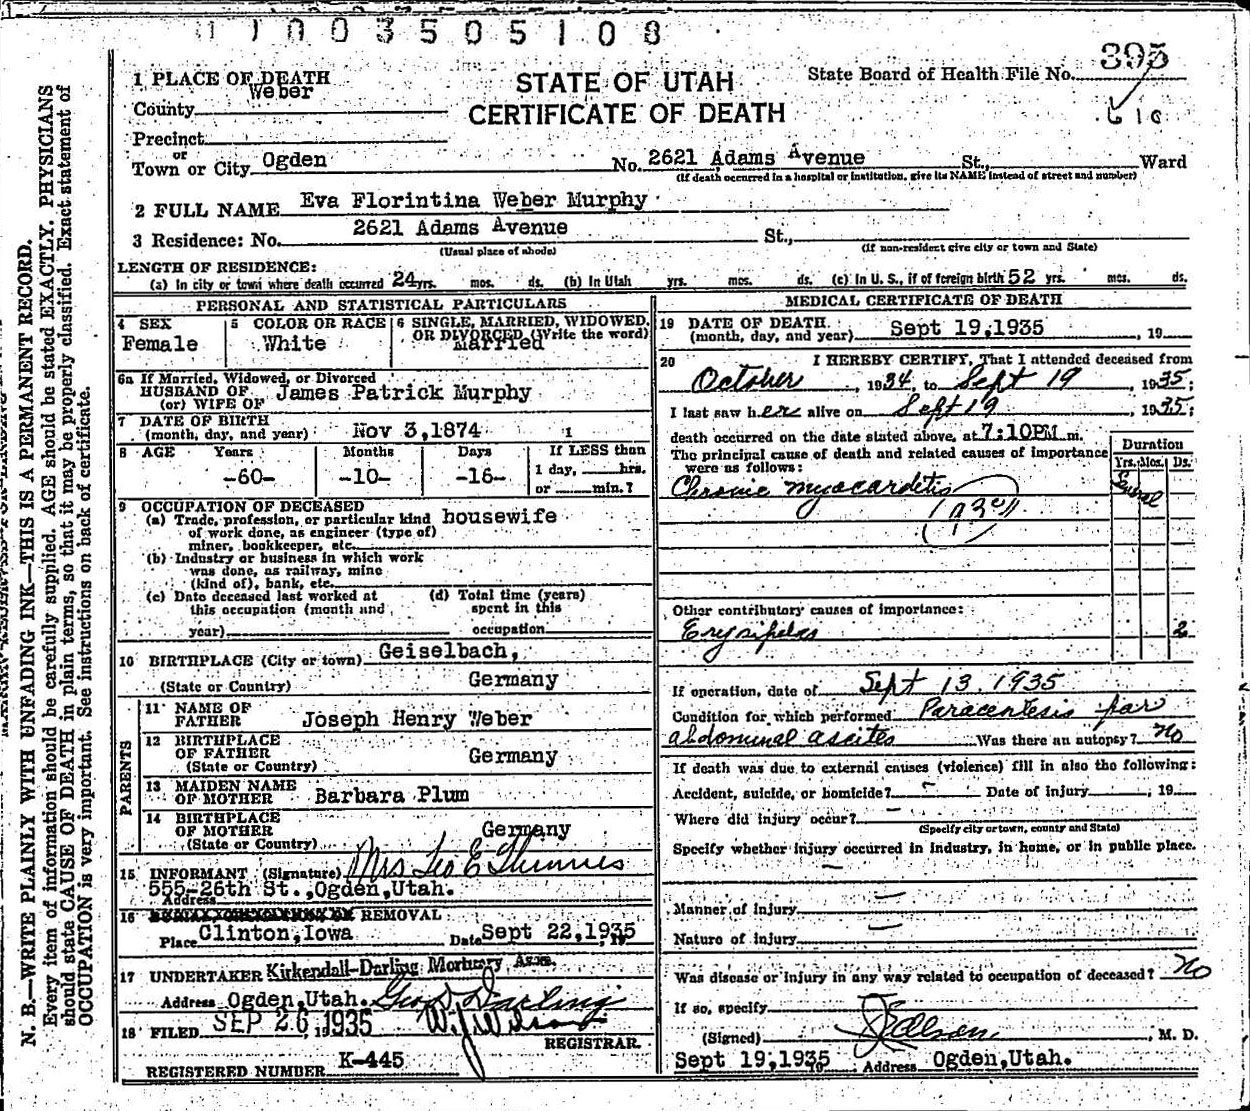 1 1 0 0 3 5 0 5 1 0 8
N. B.—WRITE PLAINLY WITH UNFADING INK—THIS IS A PERMANENT RECORD.
Every item of information should be carefully supplied. AGE should be stated EXACTLY. PHYSICIANS
should state CAUSE OF DEATH in plain terms, so that it may be properly classified. Exact statement of
OCCUPATION is very important. See instructions on back of certificate.
STATE OF UTAH
CERTIFICATE OF DEATH
State Board of Health File No. 395
1 PLACE OF DEATH
County Weber
Precinct
or
Town or City Ogden No. 2621 Adams Avenue St., Ward
(If death occurred in a hospital or institution, give its NAME instead of street and number)
2 FULL NAME Eva Florintina Weber Murphy
3 Residence: No. 2621 Adams Avenue St.,
(Usual place of abode) (If non-resident give city or town and State)
LENGTH OF RESIDENCE:
(a) In city or town where death occurred 24 yrs. mos. ds. (b) In Utah yrs. mos. ds. (c) In U. S., if of foreign birth 52 yrs. mos. ds.
PERSONAL AND STATISTICAL PARTICULARS
4 SEX Female
5 COLOR OR RACE White
6 SINGLE, MARRIED, WIDOWED, OR DIVORCED (Write the word) Married
6a If Married, Widowed, or Divorced
HUSBAND OF
(or) WIFE OF James Patrick Murphy
7 DATE OF BIRTH
(month, day, and year) Nov 3,1874
8 AGE Years Months Days If LESS than
-60- -10- -16- 1 day, hrs.
or min.?
9 OCCUPATION OF DECEASED
(a) Trade, profession, or particular kind housewife
of work done, as engineer (type of)
miner, bookkeeper, etc.
(b) Industry or business in which work
was done, as railway, mine
(kind of), bank, etc.
(c) Date deceased last worked at (d) Total time (years)
this occupation (month and spent in this
year) occupation
10 BIRTHPLACE (City or town) Geiselbach,
(State or Country) Germany
PARENTS
11 NAME OF
FATHER Joseph Henry Weber
12 BIRTHPLACE
OF FATHER Germany
(State or Country)
13 MAIDEN NAME
OF MOTHER Barbara Plum
14 BIRTHPLACE
OF MOTHER Germany
(State or Country)
15 INFORMANT (Signature) Mrs Leo E Thinnes
555-26th St.,Ogden,Utah.
Address
16 REMOVAL
Place Clinton,Iowa Date Sept 22,1935
17 UNDERTAKER Kirkendall-Darling Mortuary Assn.
Address Ogden,Utah. Geo W Darling
18 FILED SEP 26 1935
REGISTRAR.
REGISTERED NUMBER K-445
MEDICAL CERTIFICATE OF DEATH
19 DATE OF DEATH
(month, day, and year) Sept 19,1935 , 19
20 I HEREBY CERTIFY, That I attended deceased from
October , 1934, to Sept 19 , 1935;
I last saw her alive on Sept 19 , 1935;
death occurred on the date stated above, at 7:10PM m.
The principal cause of death and related causes of importance
were as follows:
Duration
Yrs. Mos. Ds.
Chronic myocarditis Several
(93c)
Other contributory causes of importance:
Erysipelas 2
If operation, date of Sept 13, 1935
Condition for which performed Paracentesis for
abdominal ascites Was there an autopsy? no
If death was due to external causes (violence) fill in also the following:
Accident, suicide, or homicide? - Date of injury , 19
Where did injury occur? -
(Specify city or town, county and State)
Specify whether injury occurred in industry, in home, or in public place.
-
-
Manner of injury
Nature of injury -
Was disease or injury in any way related to occupation of deceased? no
If so, specify
(Signed) Olson , M. D.
Sept 19,1935 Address Ogden,Utah.